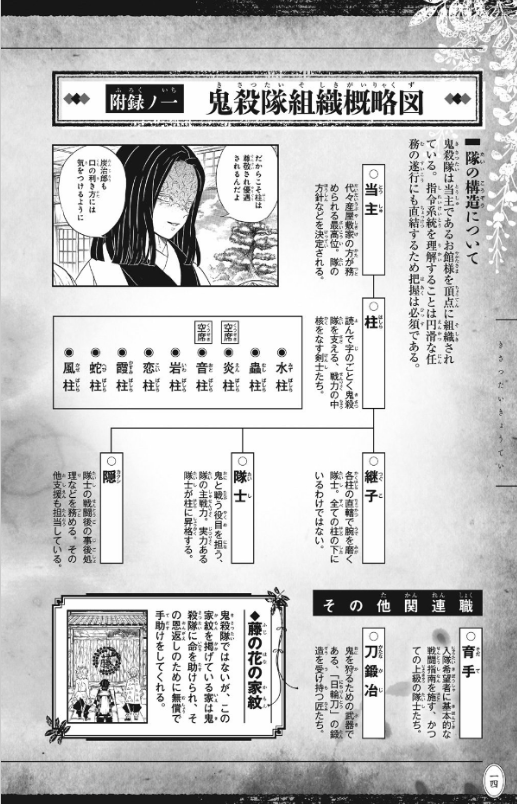 鬼殺隊組織概略図
附録ノ一
■隊の構造について
鬼殺隊は当主であるお館様を頂点に組織され
ている。指令系統を理解することは円滑な任
務の遂行にも直結するため把握は必須である。
きさつたいきょうてい
○当主
代々産屋敷家の方が務
められる最高位。隊の
方針などを決定される。
だからこそ柱は
尊敬され優遇
されるんだよ
炭治郎も
口の利き方には
気をつけるように
○柱
読んで字のごとく鬼殺
隊を支える、戦力の中
核をなす剣士たち。
◉水柱
◉蟲柱
空席
◉炎柱
空席
◉音柱
◉岩柱
◉恋柱
◉霞柱
◉蛇柱
◉風柱
○継子
各柱の直轄で腕を磨く
隊士。全ての柱の下に
いるわけではない。
○隊士
鬼と戦う役目を担う、
隊の主戦力。実力ある
隊士が柱に昇格する。
○隠
隊士の戦闘後の事後処
理などを務める。その
他支援も担当している。
その他関連職
○育手
入隊希望者に基本的な
戦闘指南を施す、かつ
ての上級の隊士たち。
○刀鍛冶
鬼を狩るための武器で
ある、「日輪刀」の鍛
造を受け持つ匠たち。
◆藤の花の家紋
鬼殺隊ではないが、この
家紋を掲げている家は鬼
殺隊に命を助けられ、そ
の恩返しのために無償で
手助けをしてくれる。
藤
一四